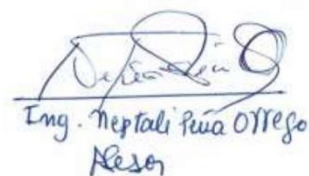 Ing. Neptali Peña Orrego
Asesor